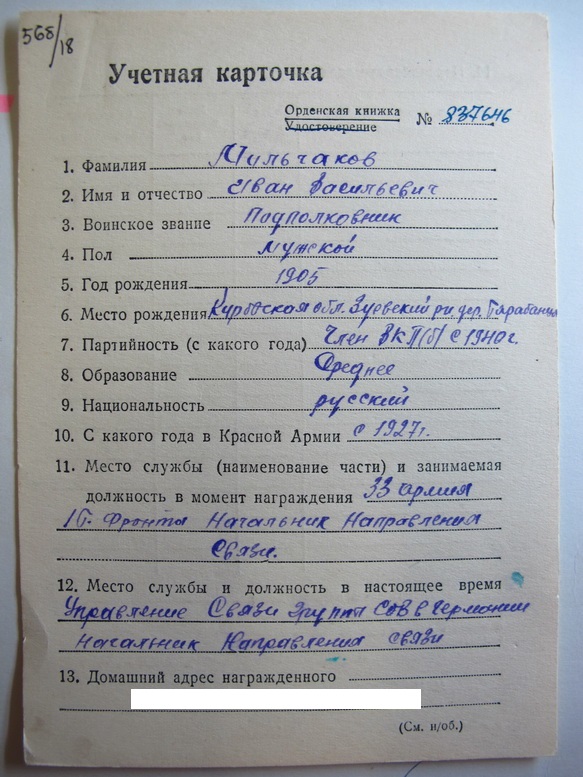 568/18
Учетная карточка
Орденская книжка
Удостоверение
№ 837646
1. Фамилия Мильчаков
2. Имя и отчество Иван Васильевич
3. Воинское звание Подполковник
4. Пол мужской
5. Год рождения 1905
6. Место рождения обл. Зуевский дер.
7. Партийность (с какого года) Член ВКП(б) с 1940 г.
8. Образование Среднее
9. Национальность русский
10. С какого года в Красной Армии с 1927 г.
11. Место службы (наименование части) и занимаемая
должность в момент награждения 33 армия
1 Б. Фронта Начальник Направления
Связи.
12. Место службы и должность в настоящее время
Управление Связи Группы СОВ в Германии
Начальник Направления связи
13. Домашний адрес награжденного
(См. н/об.)